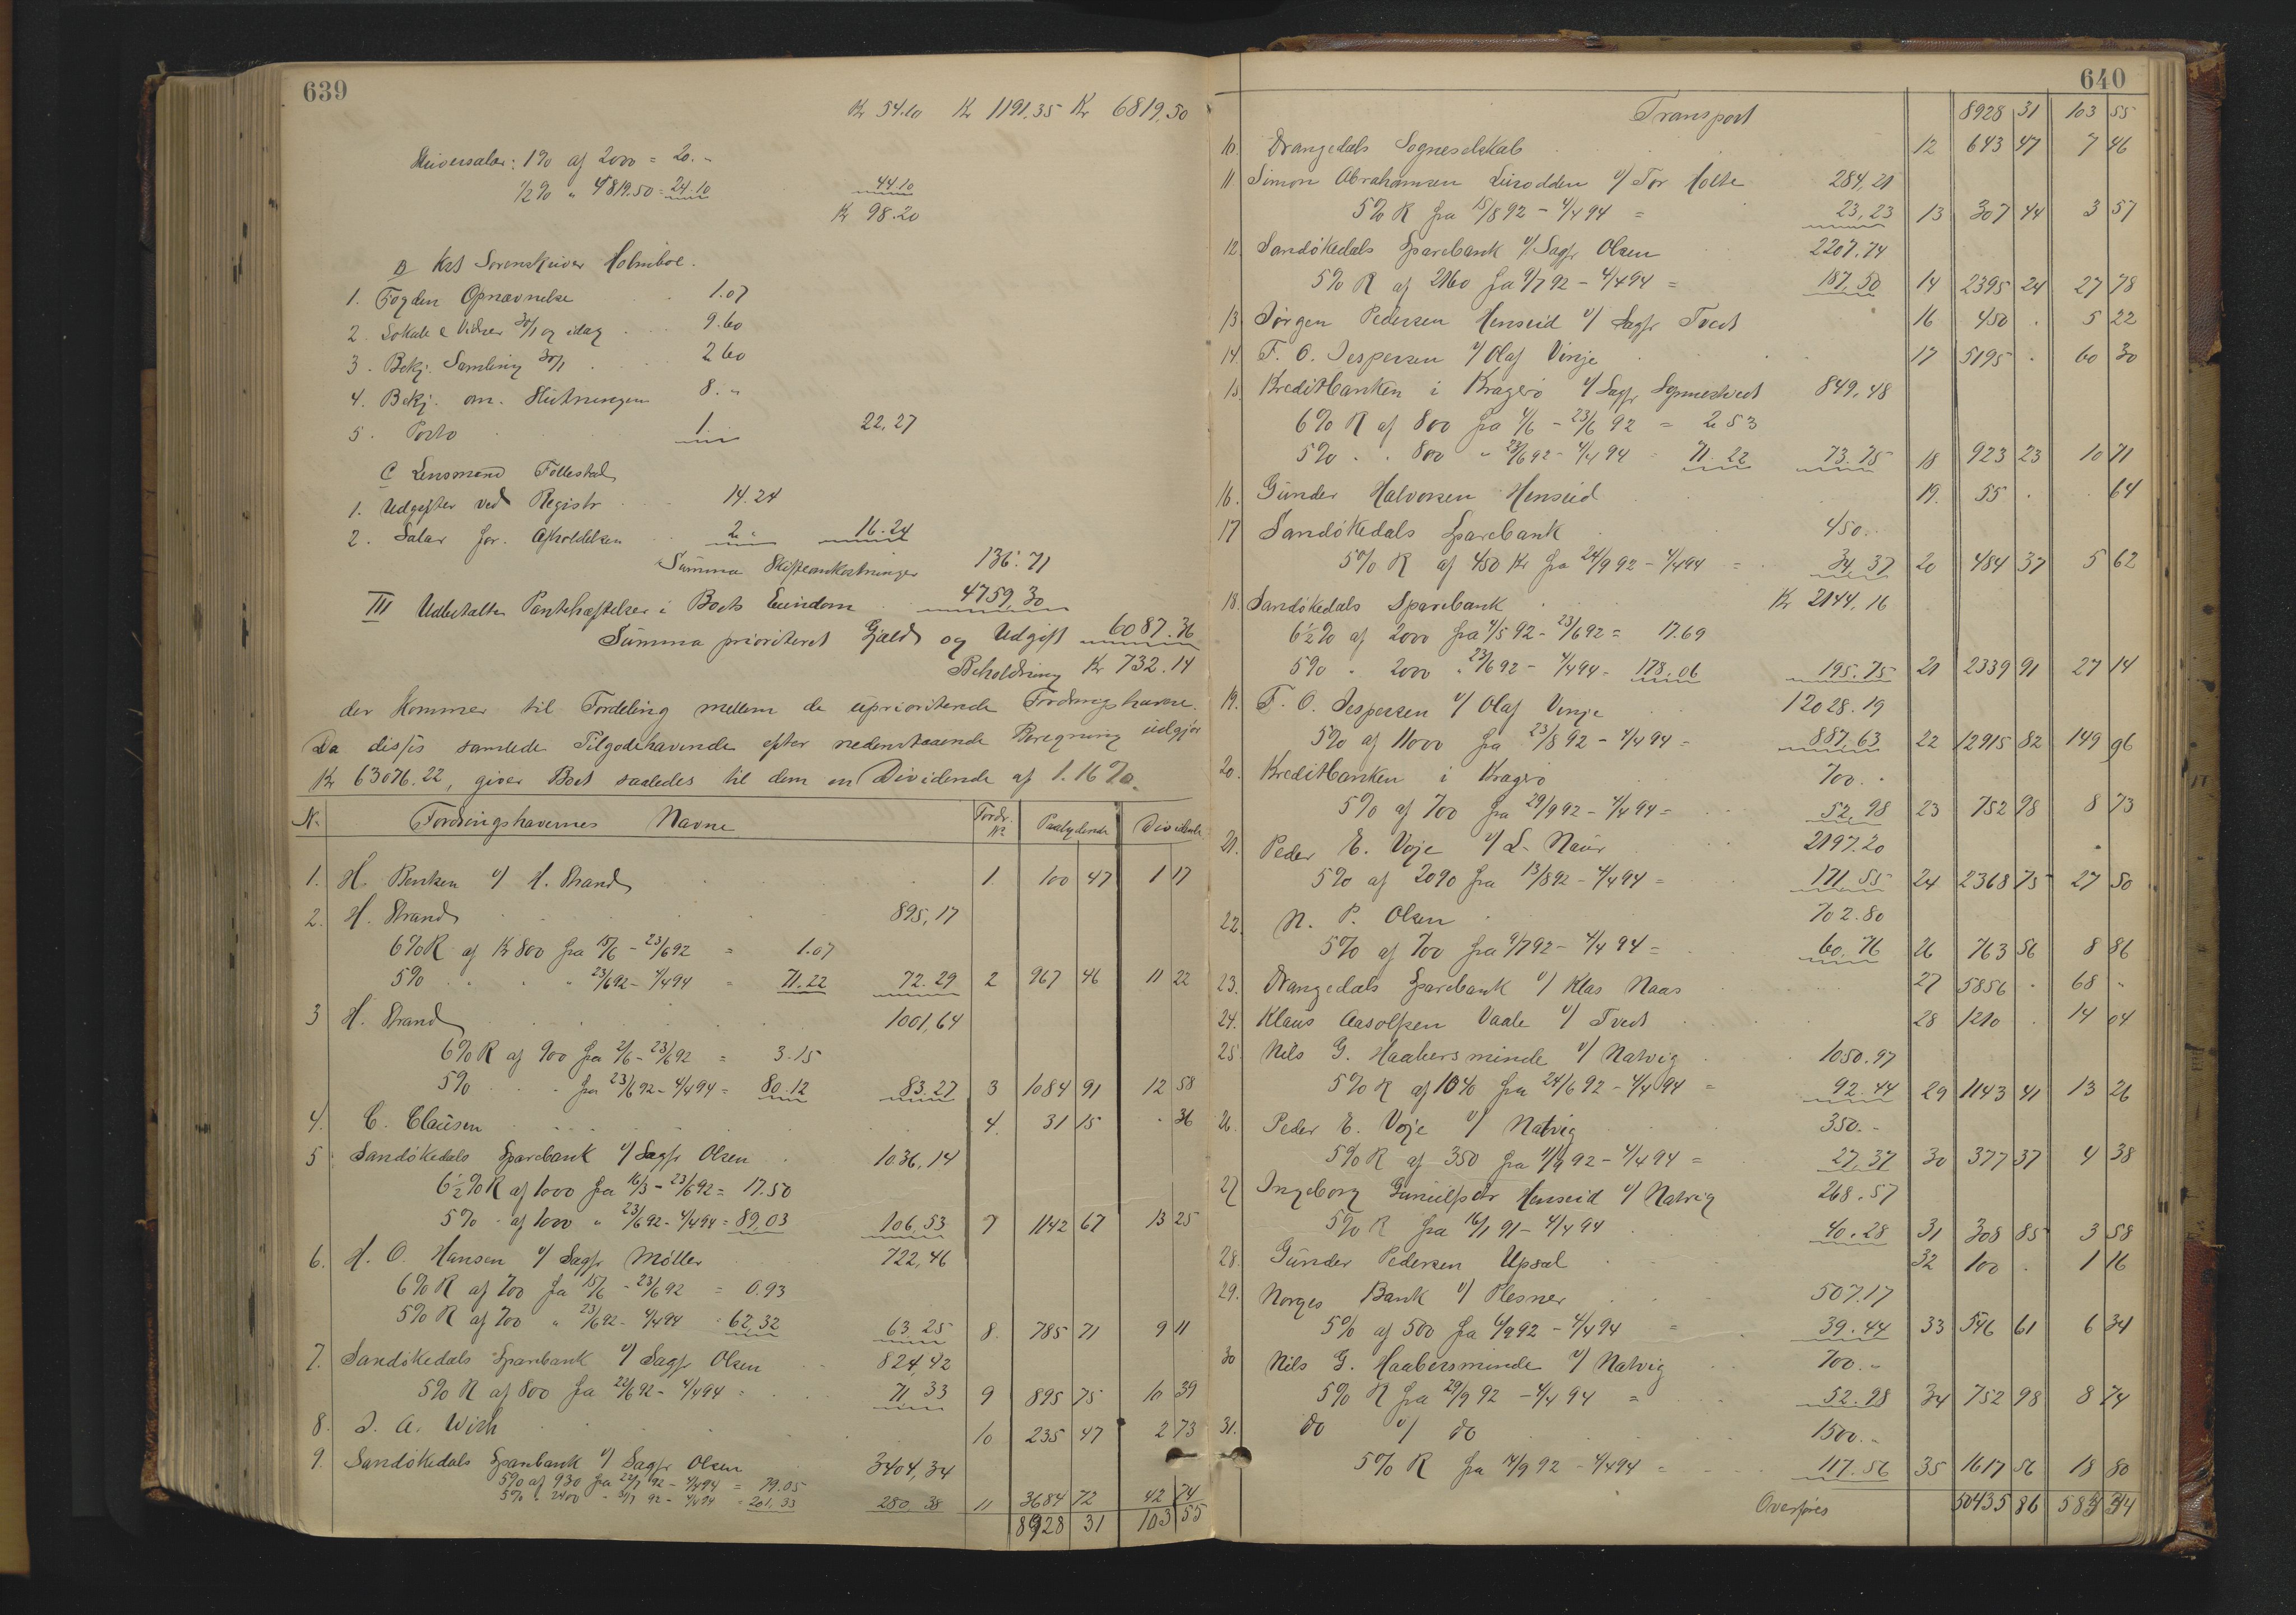 639
Kr 54.10 Kr 1191,35 Kr 6819,50
Skiversalær: 1% af 2000 = 20.-
1/2% " 4819.50 = 24.10 44.10
Kr 98.20
B Kst Sorenskriver Holmboe.
1. Fogden Opnævnelse 1.07
2. Lokale & Vidner 30/1 og idag 9.60
3. Bekj. Samling 30/1 2 60
4. Bekj. om Slutningen 8."
5. Porto 1. 22,27
C Lensmand Tollestad
1. Udgifter ved Registr 14.24
2. Salær for Afholdelsen 2." 16.24
Summa Skifteomkostninger 136.71
III Udbetalte Pantehæftelser i Boets Eiendom 4759,30
Summa prioriteret Gjæld og Udgift 6087.36
Beholdning Kr 732.14
der kommer til Fordeling mellem de uprioriterede Fordringshavere.
Da disses samlede Tilgodehavende efter nedenstaaende Beregning udgjør
Kr 63076.22, giver Boet saaledes til dem en Dividende af 1.16%.
N. Fordringshavernes Navne Fordr. No Paalydende Dividende
1. H. Bentsen v/ H. Strand 1. 100 47 1 17
2. H. Strand 895,17
6% R af Kr 800 fra 15/6 - 23/6 92 = 1.07
5% " 23/6 92 - 4/4 94 = 71.22 72.29 2 967 46 11 22
3 H. Strand 1001,64
6% R af 900 fra 2/6 - 23/6 92 = 3.15
5% fra 23/6 92 - 4/4 94 = 80.12 83.27 3 1084 91 12 58
4. C. Clausen 4. 31 15 . 36
5 Sandøkedals Sparebank v/ Sagfr Olsen 1036,14
6 1/2% R af 1000 fra 16/3 - 23/6 92 = 17.50
5% af 1000 " 23/6 92 - 4/4 94 = 89,03 106,53 7 1142 67 13 25
6. H. O. Hansen v/ Sagfr Møller 722,46
6% R af 700 fra 15/6 - 23/6 92 = 0.93
5% R af 700 " 23/6 92 - 4/4 94 = 62,32 63,25 8. 785 71 9 11
7. Sandøkedals Sparebank v/ Sagfr Olsen 824,42
5% R af 800 fra 22/6 92 - 4/4 94 = 71 33 9 895 75 10 39
8. J. A. Wirh 10 235 47 2 73
9. Sandøkedals Sparebank v/ Sagfr Olsen 3404,34
5% af 930 fra 22/7 92 - 4/4 94 = 79.05
5% " 2400 " 3/7 92 - 4/4 94 = 201,33 280,38 11 3684 72 42 74
8928 31 103 55
640
Transport 8928 31 103 55
10. Drangedals Sogneselskab 12 643 47 7 46
11 Simon Abrahamsen v/ Tor Holte 284,21
5% R fra 15/8 92 - 4/4 94 = 23,23 13 307 44 3 57
12. Sandøkedals Sparebank v/ Sagfr Olsen 2207.74
5% R af 2160 fra 9/7 92 - 4/4 94 = 187,50 14 2395 24 27 78
13. Jørgen Pedersen Henseid v/ Sagfr Tvedt 16 450 . 5 22
14. F. O. Jespersen v/ Olaf Vinje 17 5195 . 60 30
15. Kreditbanken i Kragerø v/ Sagfr Sannestvedt 849,48
6% R af 800 fra 4/6 - 23/6 92 = 2.53
5% " 800 " 23/6 92 - 4/4 94 = 71.22 73.75 18 923 23 10 71
16. Gunder Halvorsen Henseid 19. 55 . . 64
17 Sandøkedals Sparebank 450..
5% R af 450 Kr fra 24/9 92 - 4/4 94 = 34,37 20 484 37 5 62
18. Sandøkedals Sparebank Kr 2144,16
6 1/2% af 2000 fra 4/5 92 - 23/6 92 = 17.69
5% " 2000 " 23/6 92 - 4/4 94 = 178.06 195.75 21 2339 91 27 14
19. F. O. Jespersen v/ Olaf Vinje 12028.19
5% af 11000 fra 23/8 92 - 4/4 94 = 887,63 22 12915 82 149 96
20. Kreditbanken i Kragerø 700..
5% af 700 fra 29/9 92 - 4/4 94 = 52,98 23 752 98 8 73
21. Peder E. Voje v/ L. Naur 2197.20
5% af 2090 fra 13/8 92 - 4/4 94 = 171,55 24 2368 75 27 50
22. N. P. Olsen 702.80
5% af 700 fra 9/7 92 - 4/4 94 = 60,76 26 763 56 8 86
23. Drangedals Sparebank v/ Klas Naas 27 5856 . 68 "
24. Klaus Aasolfsen Vaale v/ Tvedt 28 1210 . 14 04
25. Nils G. Haabersminde v/ Natvig 1050.97
5% R af 1040 fra 24/6 92 - 4/4 94 = 92.44 29 1143 41 13 26
26. Peder E. Voje v/ Natvig 350.-
5% R af 350 fra 11/9 92 - 4/4 94 = 27,37 30 377 37 4 38
27 Ingeborg Gunulfsdtr Henseid v/ Natvig 268.57
5% R fra 16/1 91 - 4/4 94 40.28 31 308 85 3 58
28. Gunder Pedersen Upsal 32 100 . 1 16
29. Norges Bank v/ Plesner 507.17
5% af 500 fra 6/9 92 - 4/4 94 = 39.44 33 546 61 6 34
30 Nils G. Haabersminde v/ Natvig 700.-
5% R fra 29/9 92 - 4/4 94 = 52.98 34 752 98 8 74
31. do v/ do 1500.-
5% R fra 14/9 92 - 4/4 94 = 117.56 35 1617 56 18 80
Overføres 50435 86 583 34